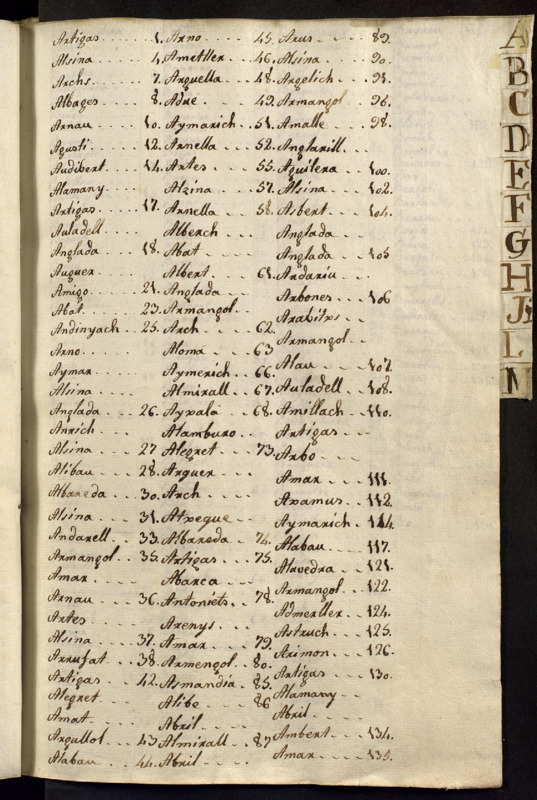 Artigas 1.
Alsina 4.
Archs 7.
Albages 8.
Arnau 10.
Agusti 12.
Audibert 14.
Alamany
Artigas 17.
Auladell
Anglada 18.
Auguer
Amigo 21.
Abat 23.
Andinyach 25.
Arno
Aymar
Alsina
Anglada 26.
Anrich
Alsina 27
Alibau 28.
Albareda 30.
Alsina 31.
Andarell 33.
Armangol 35.
Amar
Arnau 36.
Artes
Alsina 37.
Arrufat 38.
Artigas 42.
Alegret
Amat
Argullol 43
Alabau 44.
Arno 45.
Ametller 46.
Arquella 48.
Adre 49.
Aymarich 51.
Arnella 52.
Artes 55.
Alzina 57.
Arnella 58.
Alberch
Abat
Albert 61.
Anglada
Armangol
Arch 62.
Aloma 63
Aymerich 66.
Almirall 67.
Ayxala 68.
Alamburo
Alegret 73.
Arguer
Arch
Atxegue
Albareda 74.
Artigas 75.
Abarca
Antoniets 78.
Arenys
Amar 79.
Armengol 80.
Asmandia 85.
Alibe 86
Abril
Almirall 87
Abril
Arus 89.
Alsina 90.
Argelich 91.
Armangol 96.
Amalle 98.
Anglarill
Aguilera 100.
Alsina 102.
Asbert 104.
Anglada
Anglada 105
Ardariu
Arbones 106
Arabitxs
Armangol
Alau 107.
Auladell 108.
Amillach 110.
Artigas
Arbo
Amar 111.
Axamus 112.
Aymarich 114.
Alabau 117.
Alavedra 121.
Armangol 122.
Admerller 124.
Astruch 125.
Arimon 126.
Artigas 130.
Alamany
Abril
Ambert 134.
Amar 135.
A
B
C
D
E
F
G
H
L